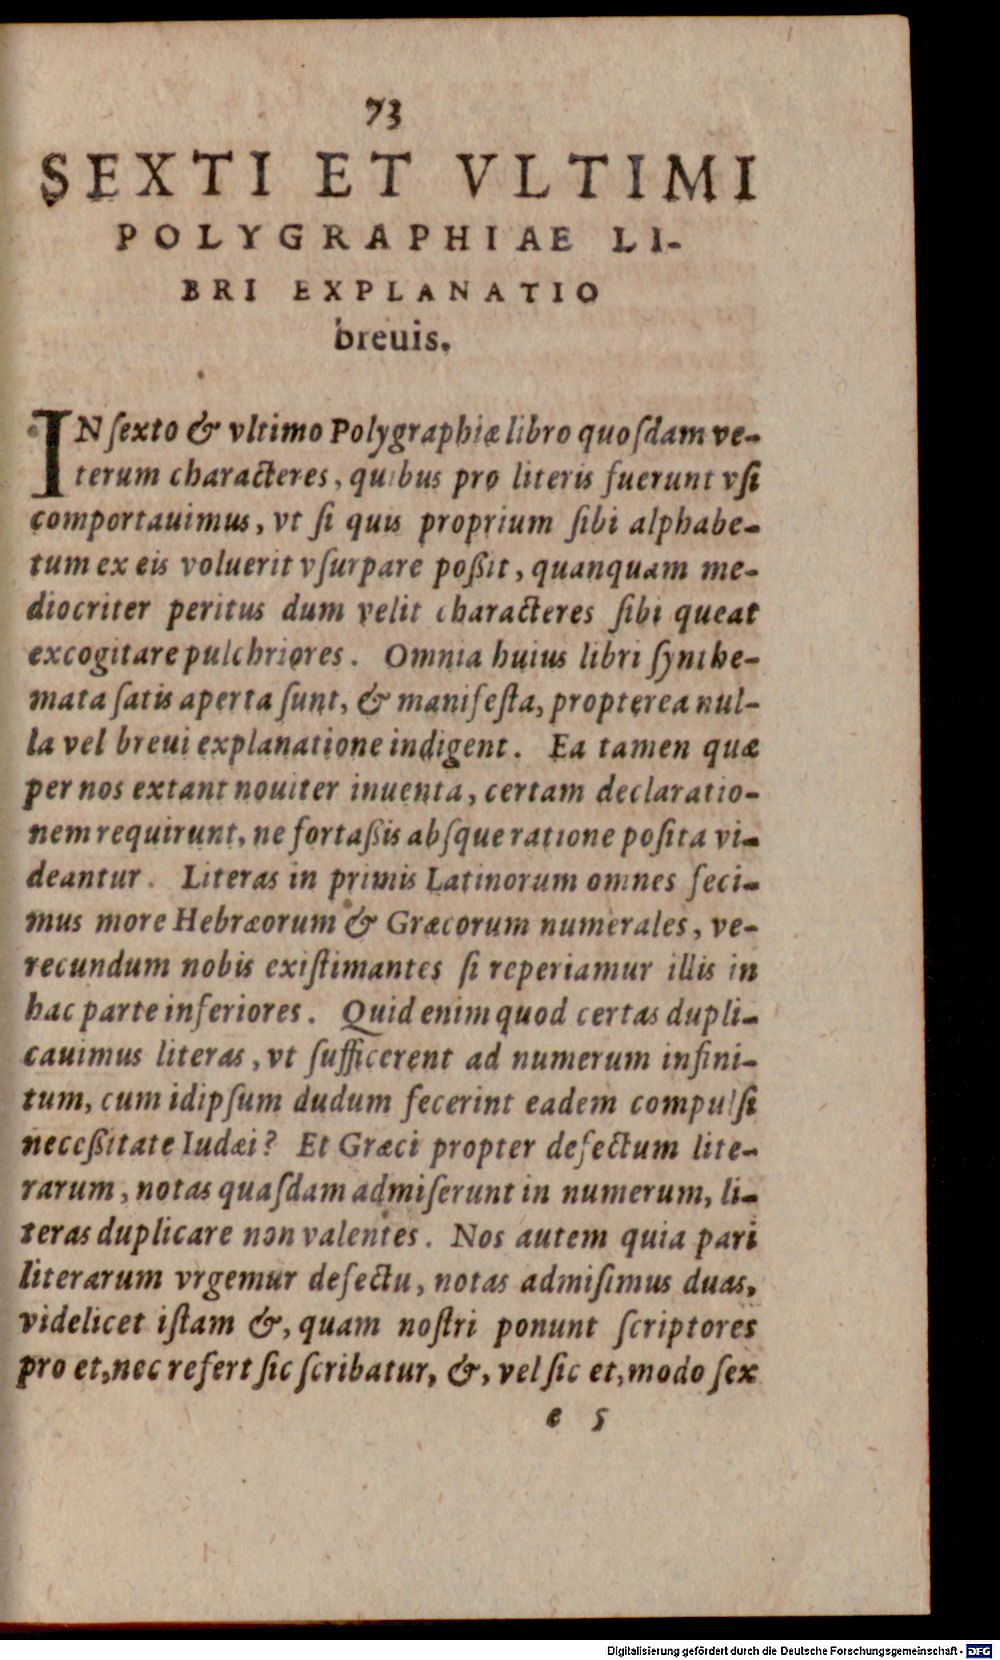 73
SEXTI ET VLTIMI
POLYGRAPHIAE LI-
BRI EXPLANATIO
breuis.
IN ſexto & vltimo Polygraphiæ libro quoſdam ve-
terum characteres, quibus pro literis fuerunt vſi
comportauimus, vt ſi quis proprium ſibi alphabe-
tum ex eis voluerit vſurpare poßit, quanquam me-
diocriter peritus dum velit characteres ſibi queat
excogitare pulchriores. Omnia huius libri ſynthe-
mata ſatis aperta ſunt, & manifeſta, propterea nul-
la vel breui explanatione indigent. Ea tamen quæ
per nos extant nouiter inuenta, certam declaratio-
nem requirunt, ne fortaßis abſque ratione poſita vi-
deantur. Literas in primis Latinorum omnes feci-
mus more Hebræorum & Græcorum numerales, ve-
recundum nobis exiſtimantes ſi reperiamur illis in
hac parte inferiores. Quid enim quod certas dupli-
cauimus literas, vt ſufficerent ad numerum infini-
tum, cum idipſum dudum fecerint eadem compulſi
neceßitate Iudæi? Et Græci propter defectum lite-
rarum, notas quaſdam admiſerunt in numerum, li-
teras duplicare non valentes. Nos autem quia pari
literarum vrgemur defectu, notas admiſimus duas,
videlicet iſtam &, quam noſtri ponunt ſcriptores
pro et, nec refert ſic ſcribatur, &, vel ſic et, modo ſex
e 5
Digitalisierung gefördert durch die Deutsche Forschungsgemeinschaft - DFG